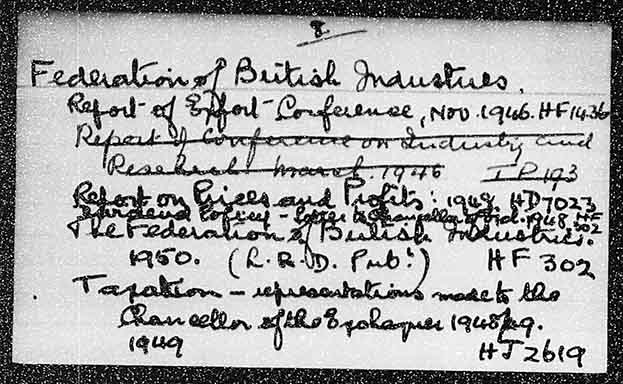 8.
Federation of British Industries.
Report of Export Conference, Nov. 1946. HF 1436
Report of Conference on Industry and
Research. March. 1946 IP 193
Report on Prices and Profits: 1949. HD7023
Dividend Policy - letter to Chancellor of 1948, HF 302
The Federation of British Industries.
1950. (L.R.D. Pub.) HF 302
Taxation - representations made to the
Chancellor of the Exchequer 1948/49.
1949 HJ 2619